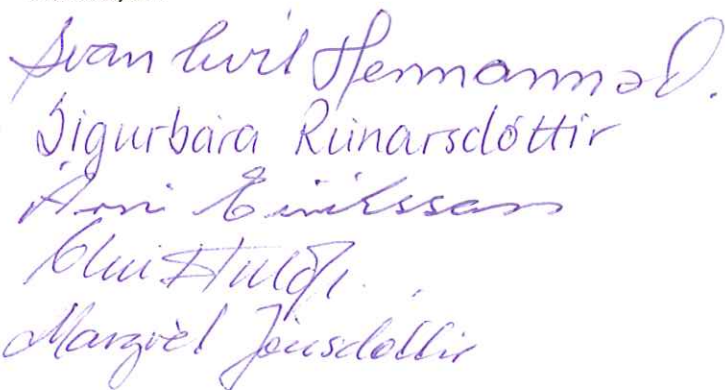 Svanhvít Hermannsd.
Sigurbára Rúnarsdóttir
Árni Eiríksson
Margrét Jónsdóttir